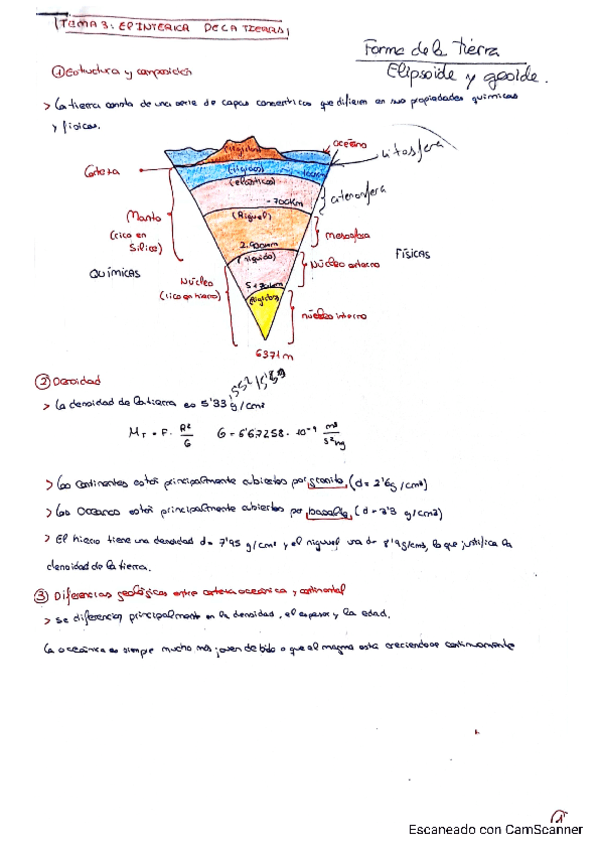 TEMA 3: EP INTERICA DE LA TIERRA
Forma de la tierra
Elipsoide y geoide.
① Estructura y composición
> La tierra consta de una serie de capas concentricas que difieren en sus propiedades químicas
y físicas.
(rígidos)
oceáno
Litosfera
Corteza
(rígidos)
100km
(elásticos)
astenosfera
- 700Km
Manto
(rico en
Silice)
(Rígido)
mesosfera
2.900km
FÍSICAS
(líquido)
Núcleo externo
QUÍMICAS
Núcleo
(rico en hierro)
(rígidos)
núcleo interno
6371 m
② Densidad
5'52 / 5'59
> La densidad de la tierra es 5'33 g/cm³
M_T = F · R²/G G = 6'67258 · 10⁻¹¹ m³/s²kg
> Los continentes están principalmente cubiertos por granito, (d = 2'6g/cm³)
> Los Oceanos están principalmente cubiertos por basalto, (d = 3'3 g/cm3)
> El hierro tiene una densidad d = 7'95 g/cm³ y el niquel una d = 8'9g/cm3, lo que justifica la
densidad de la tierra.
③ Diferencias geológicas entre corteza oceánica y continental
> Se diferencian principalmente en la densidad, el espesor y la edad.
La oceánica es siempre mucho más joven debido a que el magma está creciendose continuamente
1
Escaneado con CamScanner